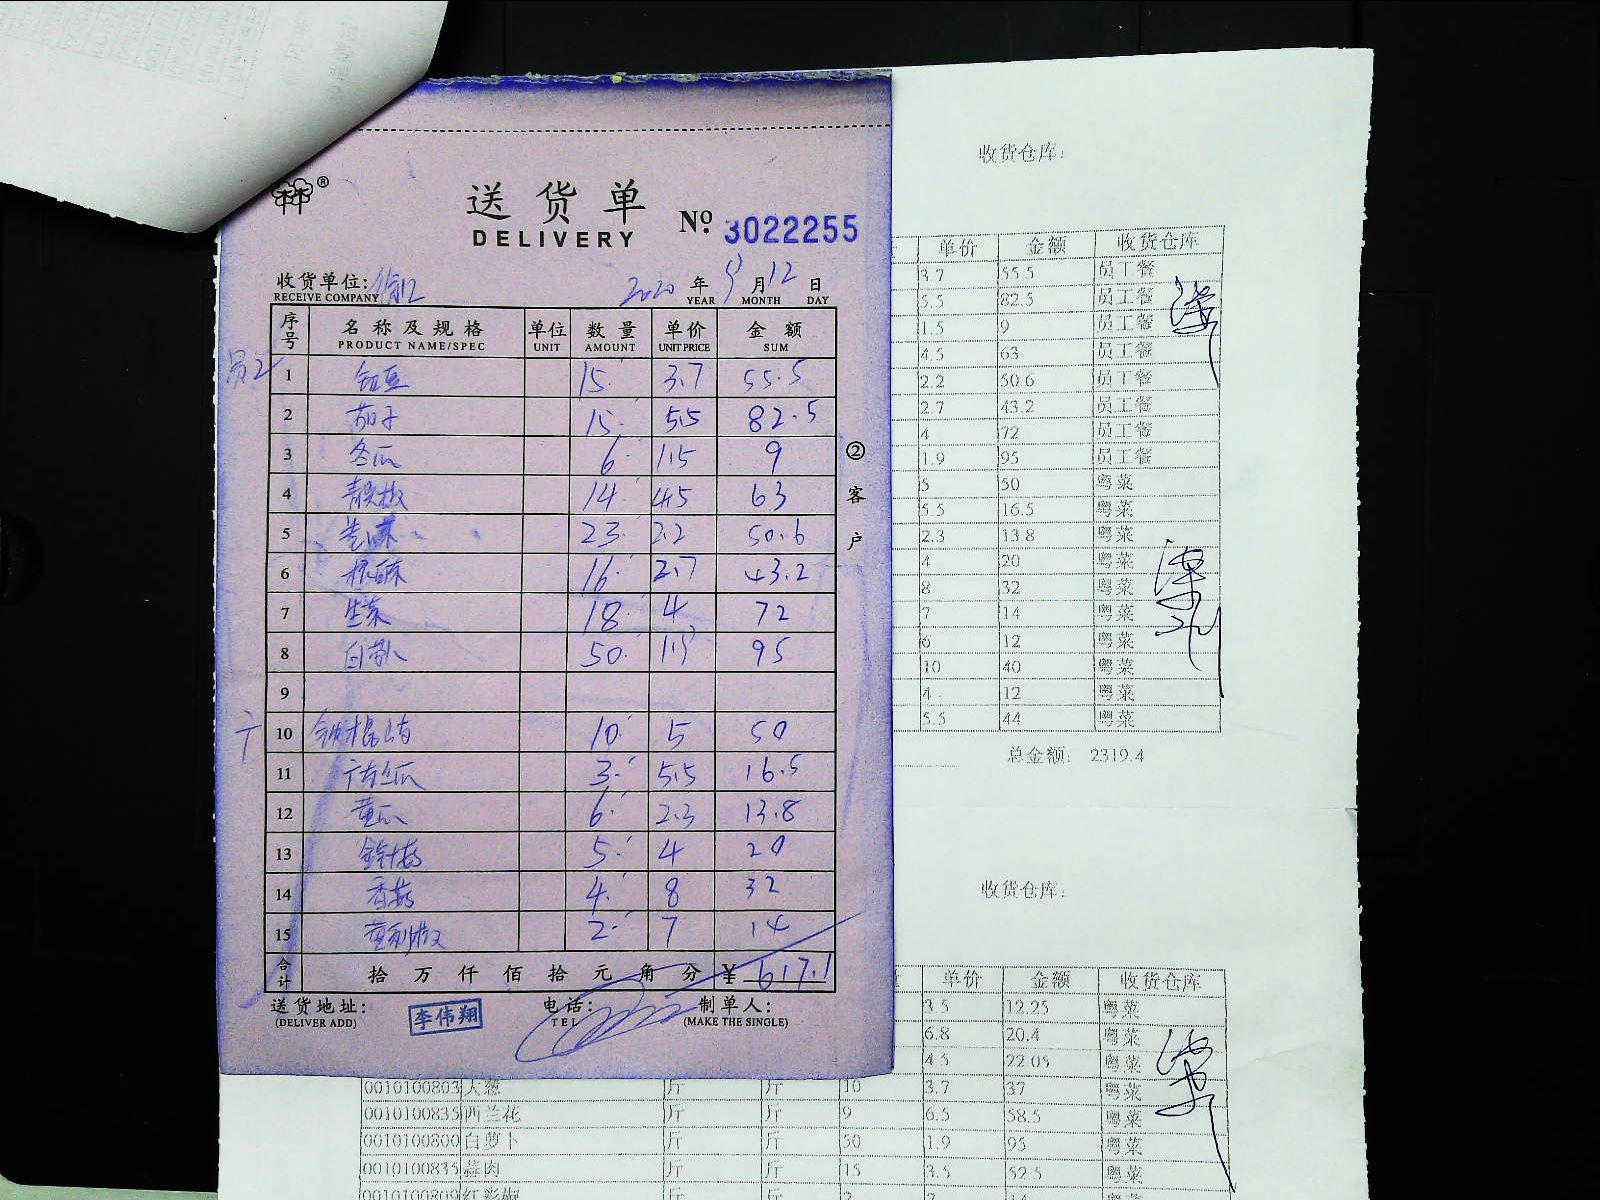 送货单
DELIVERY
№ 3022255
收货单位:
RECEIVE COMPANY
2020 年 9 月 12 日
YEAR MONTH DAY
序号 名称及规格 单位 数量 单价 金额
PRODUCT NAME/SPEC UNIT AMOUNT UNIT PRICE SUM
员工
1 15 3.7 55.5
2 茄子 15 5.5 82.5
3 冬瓜 6 1.5 9
4 青尖椒 14 4.5 63
5 23 2.2 50.6
6 16 2.7 43.2
7 生菜 18 4 72
8 白萝卜 50 1.9 95
9
10 铁棍山药 10 5 50
11 广东丝瓜 3 5.5 16.5
12 黄瓜 6 2.3 13.8
13 金针菇 5 4 20
14 香菇 4 8 32
15 2 7 14
合计 拾万仟佰拾元角分 ¥ 617.1
送货地址:
(DELIVER ADD)
李伟翔
电话:
TEL
制单人:
(MAKE THE SINGLE)
②客户
收货仓库:
单价 金额 收货仓库
3.7 55.5 员工餐
5.5 82.5 员工餐
1.5 9 员工餐
4.5 63 员工餐
2.2 50.6 员工餐
2.7 43.2 员工餐
4 72 员工餐
1.9 95 员工餐
5 50 粤菜
5.5 16.5 粤菜
2.3 13.8 粤菜
4 20 粤菜
8 32 粤菜
7 14 粤菜
6 12 粤菜
10 40 粤菜
4 12 粤菜
5.5 44 粤菜
总金额: 2319.4
收货仓库:
单价 金额 收货仓库
3.5 12.25 粤菜
6.8 20.4 粤菜
4.5 22.05 粤菜
0010100803 大葱 斤 斤 10 3.7 37 粤菜
0010100835 西兰花 斤 斤 9 6.5 58.5 粤菜
0010100800 白萝卜 斤 斤 50 1.9 95 粤菜
0010100835 蒜肉 斤 斤 15 3.5 52.5 粤菜